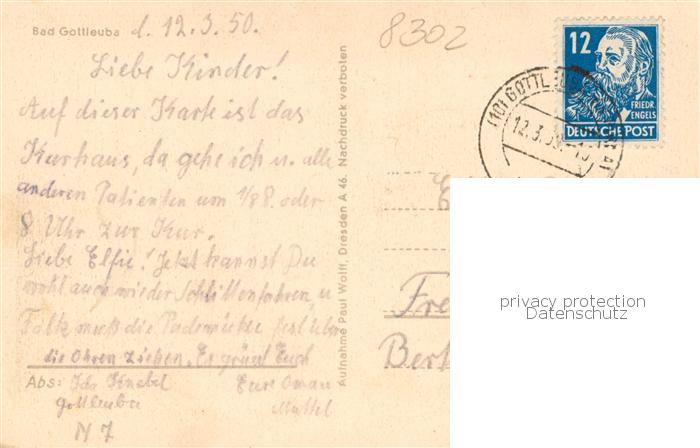 Bad Gottleuba d. 12.3.50.
Liebe Kinder!
Auf dieser Karte ist das
Kurhaus, da gehe ich u. alle
anderen Patienten um 1/2 8 oder
8 Uhr zur Kur.
Liebe Elfie! Jetzt kannst Du
wohl auch wieder Schlittenfahren u
muß die Pudemütze fest über
die Ohren ziehen. Es grüßt Euch
Abs: Knebel Eure Oma u
Gottleuba
N 7
Aufnahme Paul Wolff, Dresden A 46. Nachdruck verboten
8302
12
FRIEDR.
ENGELS
DEUTSCHE POST
(10) GOTTLEU
12.3.50
Fre
Ber
privacy protection
Datenschutz